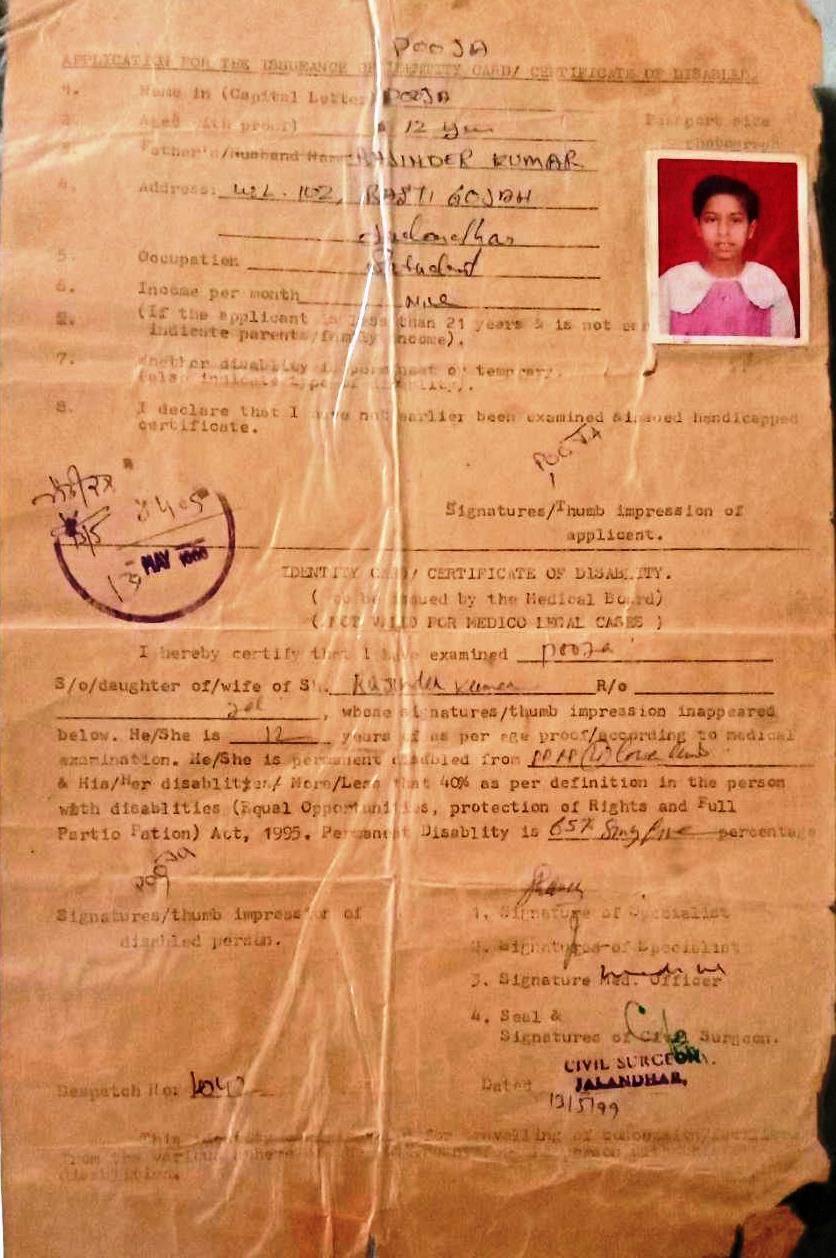 POOJA
APPLICATION FOR THE ISSUANCE OF IDENTITY CARD/ CERTIFICATE OF DISABLED.
1. Name in (Capital Letter POOJA
Aged with proof) 12 Year
Passport size
photograph
3. Father's/Husband Name RAJINDER KUMAR
4. Address: W.L. 102, BASTI GUJAH
Jalandhar
5. Occupation Student
6. Income per month
(If the applicant is less than 21 years & is not
indicate parents/family income).
7. Whether disability is permanent or temprary.
(also indicate type of disability).
8. I declare that I have not earlier been examined & issued handicapped
certificate.
POOJA
Signatures/Thumb impression of
applicant.
8405
13 MAY
IDENTITY CARD/ CERTIFICATE OF DISABLITY.
( to be issued by the Medical Board)
( NOT VALID FOR MEDICO LEGAL CASES )
I hereby certify that I have examined pooja
S/o/daughter of/wife of Sh. Rajinder Kumar R/o
Jal, whose signatures/thumb impression inappeared
below. He/She is 12 years of as per age proof/according to medical
examination. He/She is permanent disabled from PPRP
& His/Her disablity/ More/Less that 40% as per definition in the person
with disablities (Equal Opportunities, protection of Rights and Full
Partic Pation) Act, 1995. Permanent Disablity is 65% Sixty five percentage
Signatures/thumb impression of
disabled person.
1. Signature of Specialist
2. Signatures of Specialist
3. Signature Med. Officer
4. Seal &
Signatures of Civil Surgeon.
CIVIL SURGEON.
JALANDHAR.
Despatch No:
Dated
13/5/99
This for travelling of
from the various